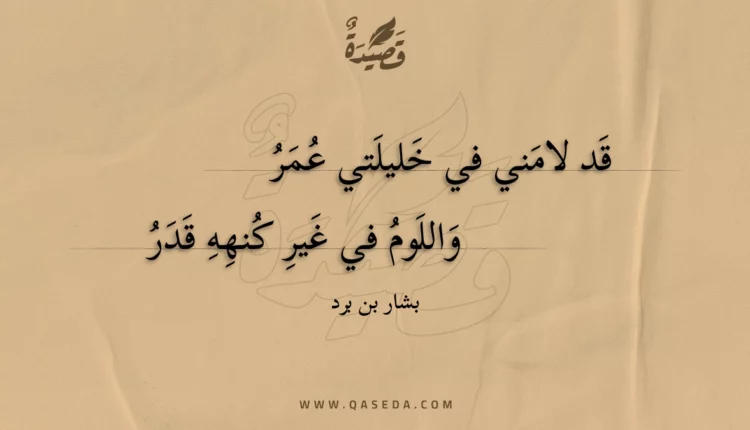 قَصِيدَةٌ
قَد لامَني في خَليلَتي عُمَرُ
وَاللَومُ في غَيرِ كُنهِهِ قَدَرُ
بشار بن برد
WWW.QASEDA.COM